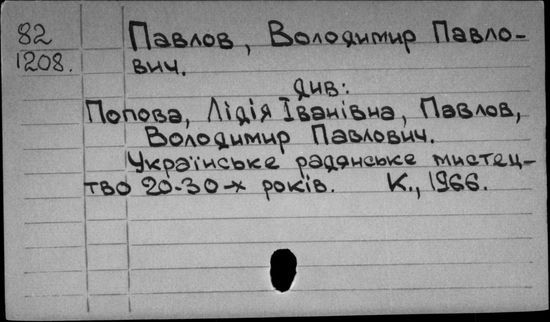 82
1208.
Павлов, Володимир Павло-
вич.
див:
Попова, Лідія Іванівна, Павлов,
Володимир Павлович.
Українське радянське мистец-
тво 20-30-х років. К., 1966.